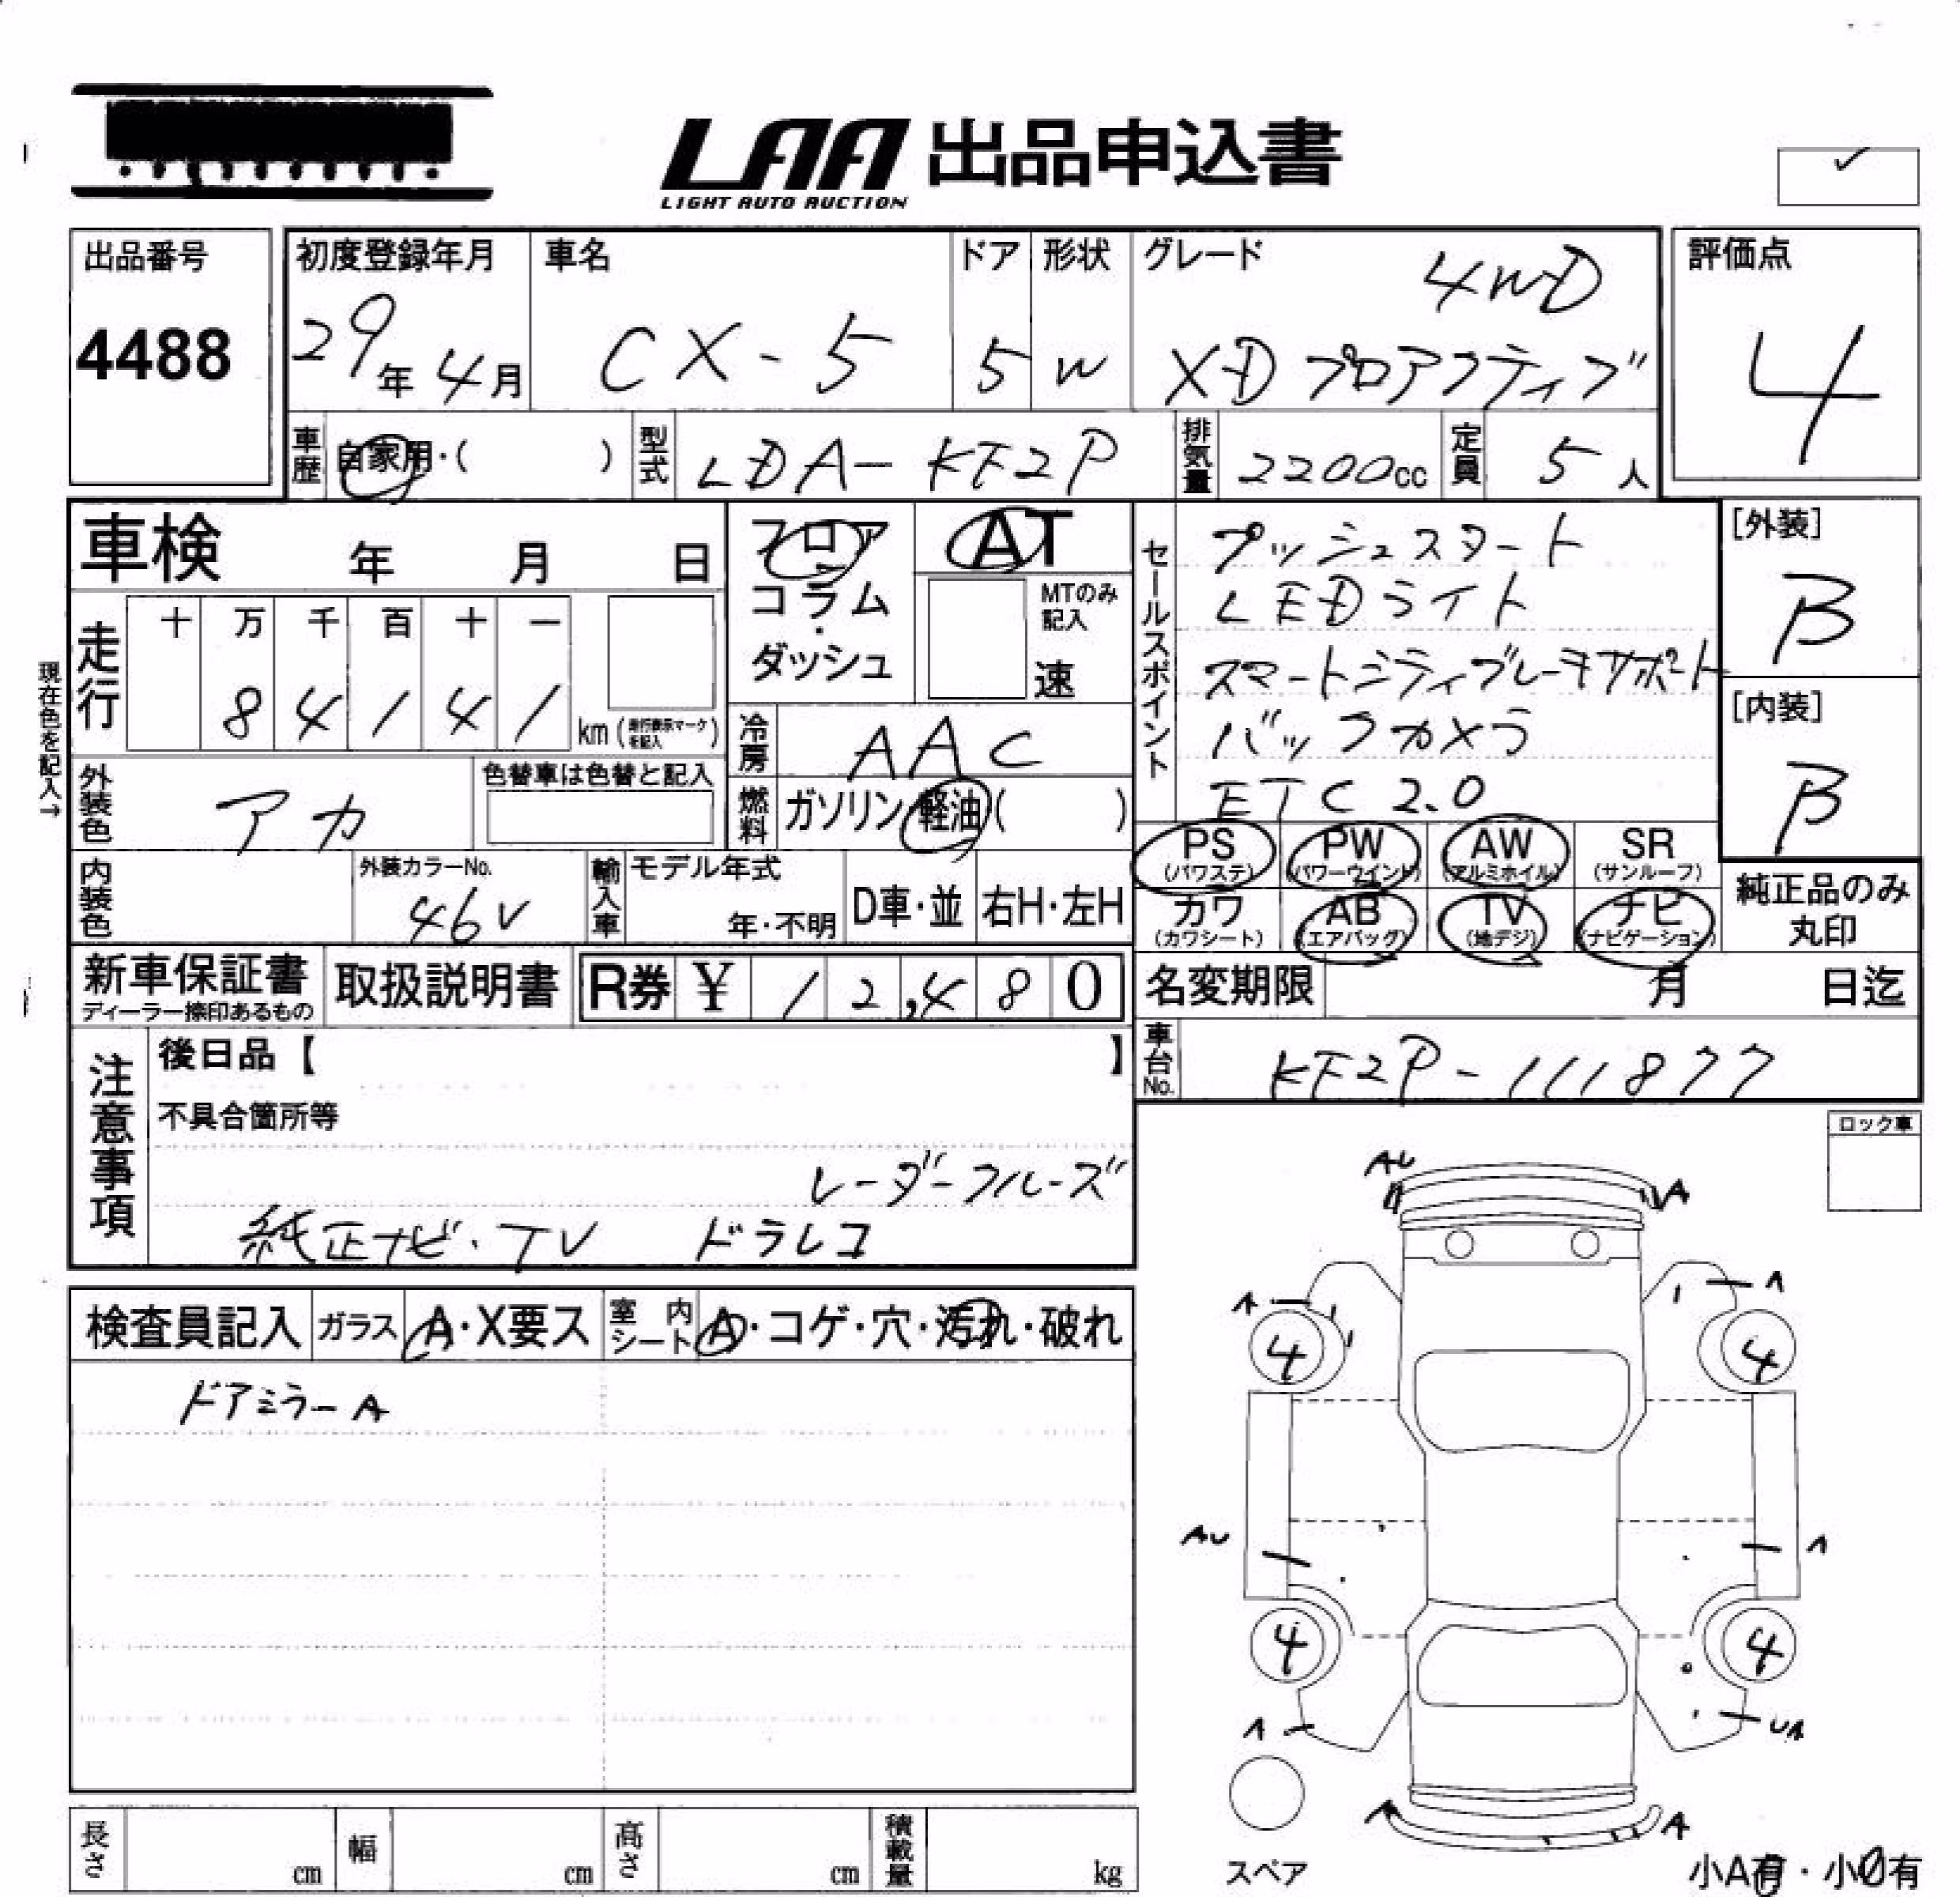 LAA 出品申込書
LIGHT AUTO AUCTION
出品番号
4488
初度登録年月
29年 4月
車名
CX-5
ドア
5
形状
W
グレード
4WD
XD プロアクティブ
評価点
4
車歴
自家用・( )
型式
LDA-KF2P
排気量
2200cc
定員
5人
車検 年 月 日
フロア
コラム
・
ダッシュ
AT
MTのみ
記入
速
走行
十 万 千 百 十 一
8 4 1 4 1
km (走行表示マークを記入)
現在色を記入→
冷房
AAC
燃料
ガソリン・軽油( )
外装色
アカ
色替車は色替と記入
内装色
外装カラーNo.
46V
輸入車
モデル年式
年・不明
D車・並
右H・左H
セールスポイント
プッシュスタート
LEDライト
スマートシティブレーキサポート
バックカメラ
ETC2.0
[外装]
B
[内装]
B
PS
(パワステ)
PW
(パワーウインド)
AW
(アルミホイル)
SR
(サンルーフ)
カワ
(カワシート)
AB
(エアバッグ)
TV
(地デジ)
ナビ
(ナビゲーション)
純正品のみ
丸印
新車保証書
ディーラー捺印あるもの
取扱説明書
R券 ¥ 12,480
名変期限 月 日迄
車台No.
KF2P-111877
注意事項
後日品【 】
不具合箇所等
レーダークルーズ
純正ナビ・TV ドラレコ
ロック車
検査員記入
ガラス
A・X要ス
室内シート
A・コゲ・穴・汚れ・破れ
ドアミラーA
AU
A
A
A
4
4
AU
A
4
4
A
UA
A
スペア
小A有・小U有
長さ cm
幅 cm
高さ cm
積載量 kg